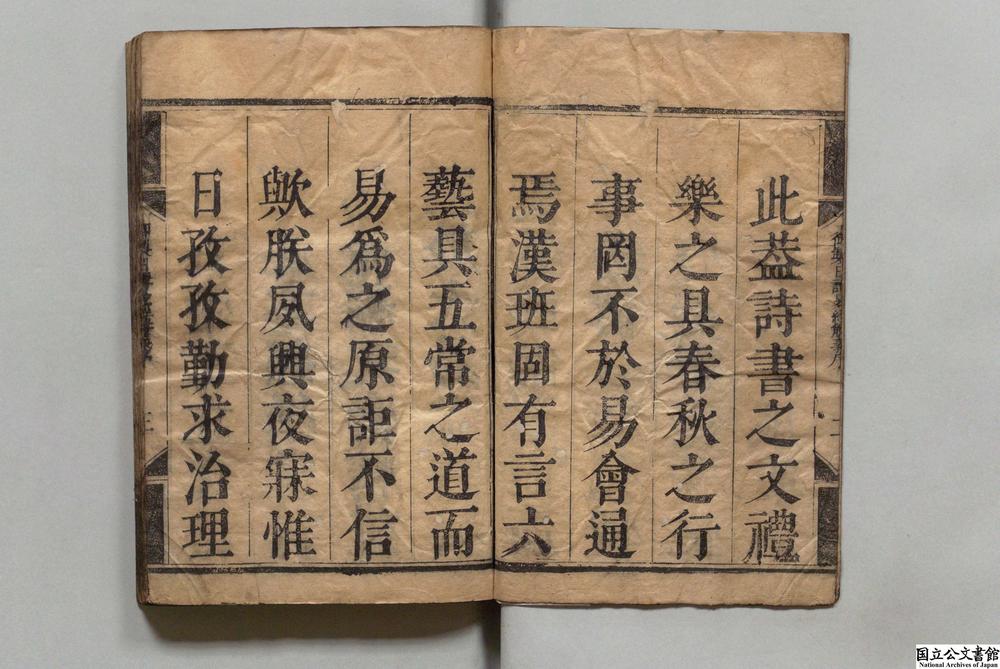 此葢詩書之文禮
樂之具春秋之行
事罔不於易會通
焉漢班固有言六
藝具五常之道而
易爲之原詎不信
歟朕夙興夜寐惟
日孜孜勤求治理
国立公文書館
National Archives of Japan